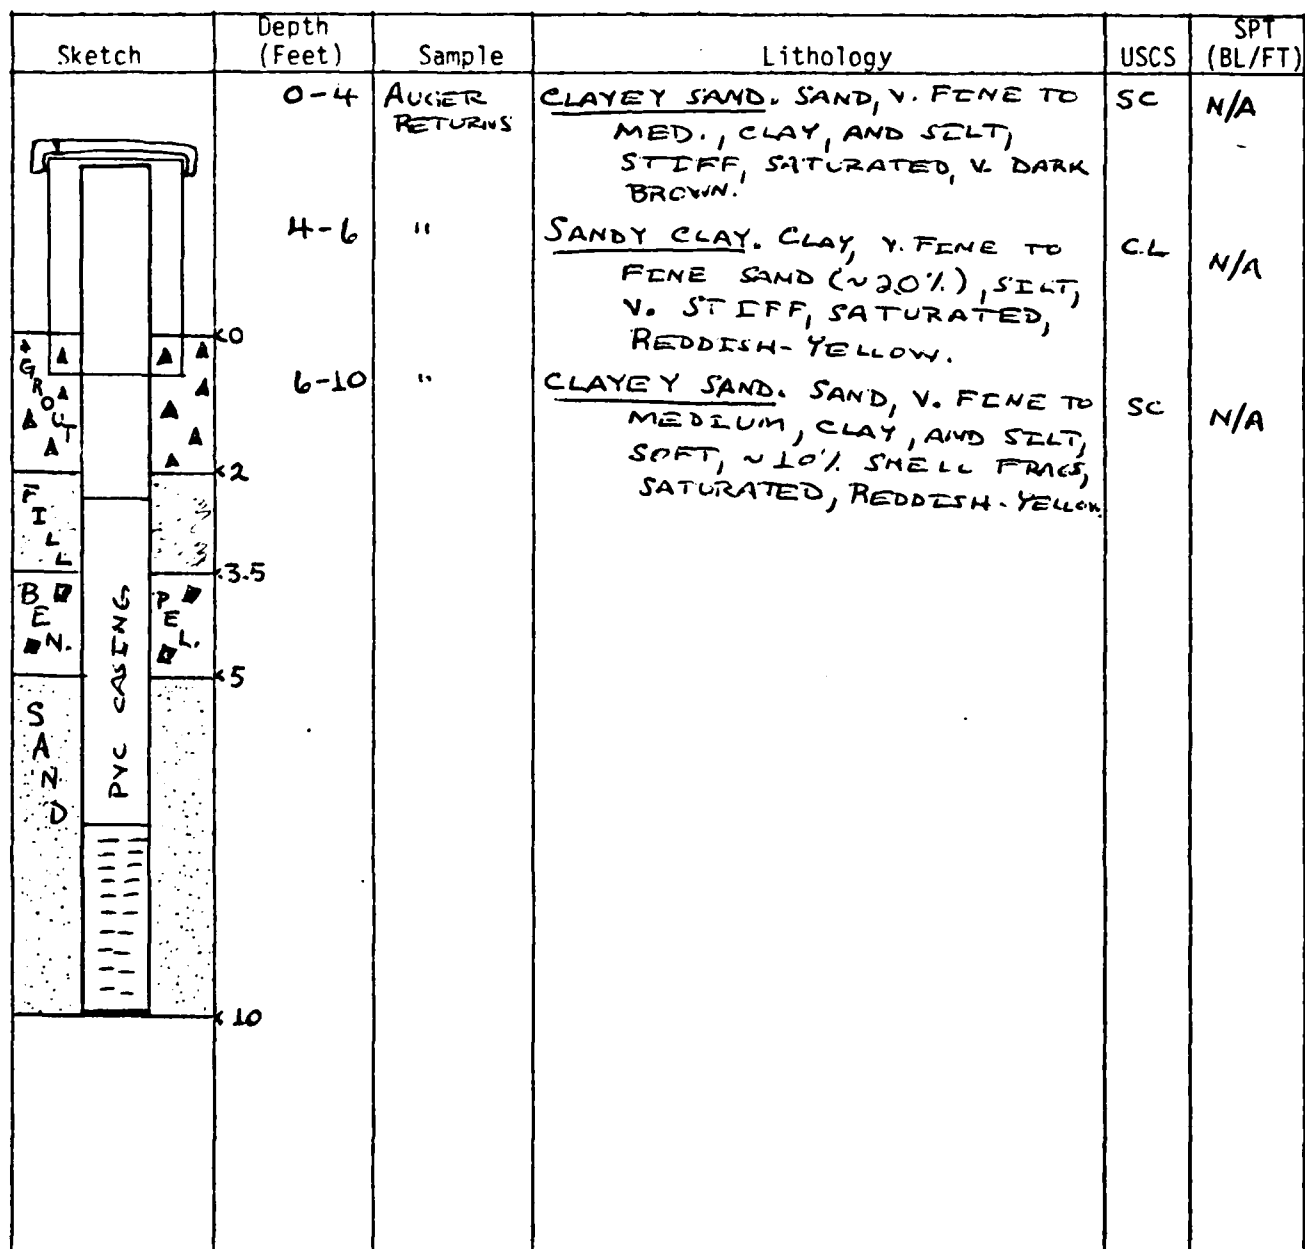 Sketch
Depth
(Feet)
Sample
Lithology
USCS
SPT
(BL/FT)
0-4
AUGER
RETURNS
CLAYEY SAND. SAND, V. FINE TO
MED., CLAY, AND SILT,
STIFF, SATURATED, V. DARK
BROWN.
SC
N/A
4-6
"
SANDY CLAY. CLAY, V. FINE TO
FINE SAND (~20%), SILT,
V. STIFF, SATURATED,
REDDISH-YELLOW.
CL
N/A
6-10
"
CLAYEY SAND. SAND, V. FINE TO
MEDIUM, CLAY, AND SILT,
SOFT, ~10% SHELL FRAGS,
SATURATED, REDDISH-YELLOW.
SC
N/A
0
GROUT
2
FILL
3.5
BEN.
PEL.
5
PVC CASING
SAND
10